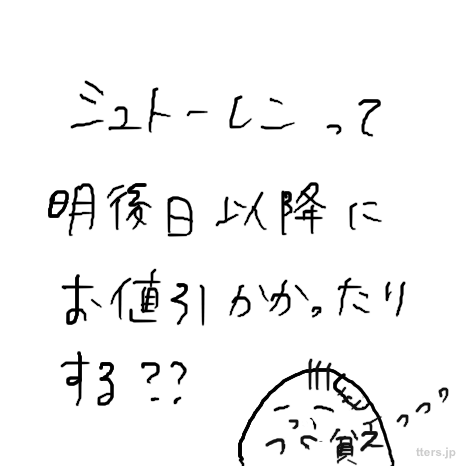 シュトーレンって
明後日以降に
お値引かかったり
する??
貧乏
tters.jp